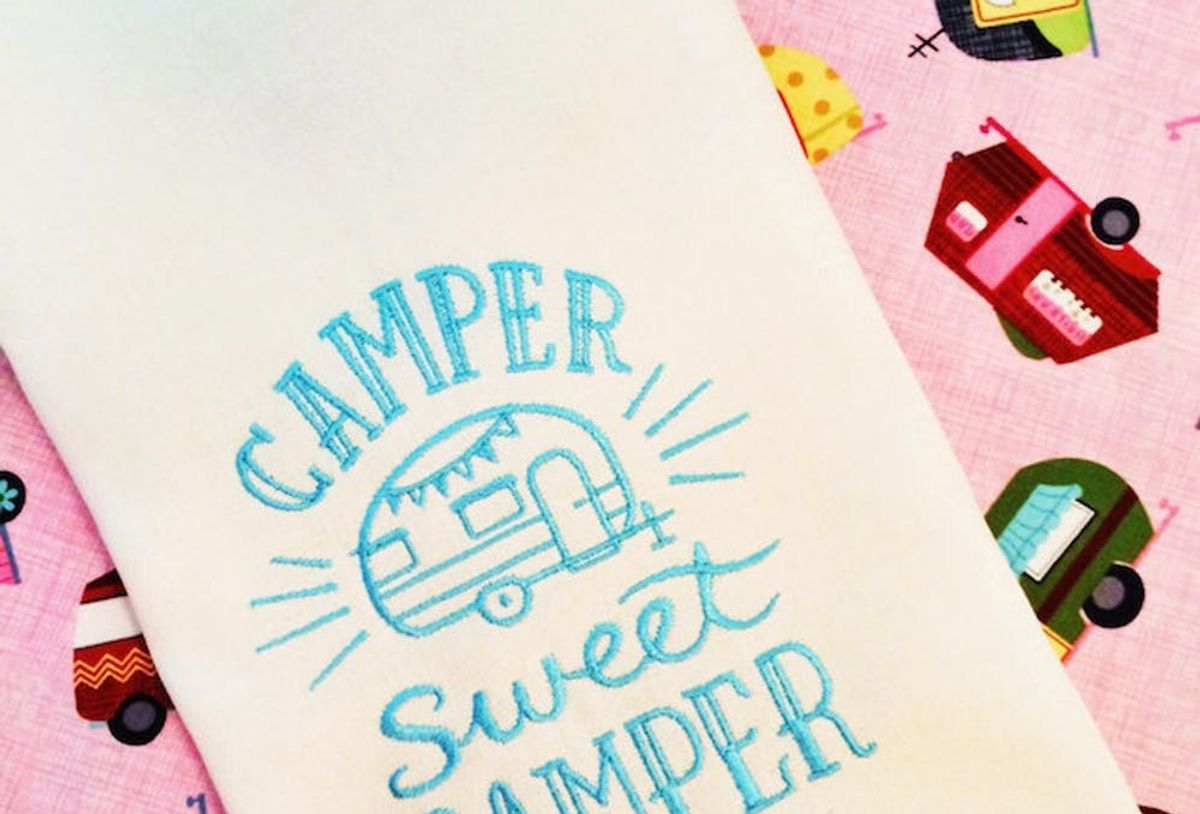 CAMPER
sweet
CAMPER